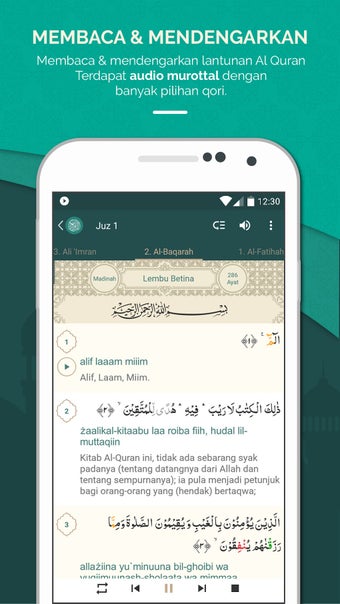 MEMBACA & MENDENGARKAN
Membaca & mendengarkan lantunan Al Quran
Terdapat audio murottal dengan
banyak pilihan qori.
12:30
Juz 1
3. Ali 'Imran
2. Al-Baqarah
1. Al-Fatihah
Madinah
Lembu Betina
286
Ayat
بِسْمِ اللّٰهِ الرَّحْمٰنِ الرَّحِيْمِ
1
الۤمّۤ ۚ ﴿١﴾
alif laaam miiim
Alif, Laam, Miim.
2
ذٰلِكَ الْكِتٰبُ لَا رَيْبَ ۛ فِيْهِ ۛ هُدًى لِّلْمُتَّقِيْنَ ﴿٢﴾
żaalikal-kitaabu laa roiba fiih, hudal lil-
muttaqiin
Kitab Al-Quran ini, tidak ada sebarang syak
padanya (tentang datangnya dari Allah dan
tentang sempurnanya); ia pula menjadi petunjuk
bagi orang-orang yang (hendak) bertaqwa;
3
الَّذِيْنَ يُؤْمِنُوْنَ بِالْغَيْبِ وَيُقِيْمُوْنَ الصَّلٰوةَ وَمِمَّا
رَزَقْنٰهُمْ يُنْفِقُوْنَ ﴿٣﴾
allażiina yu`minuuna bil-ghoibi wa
yuqiimuunash-sholaata wa mimmaa